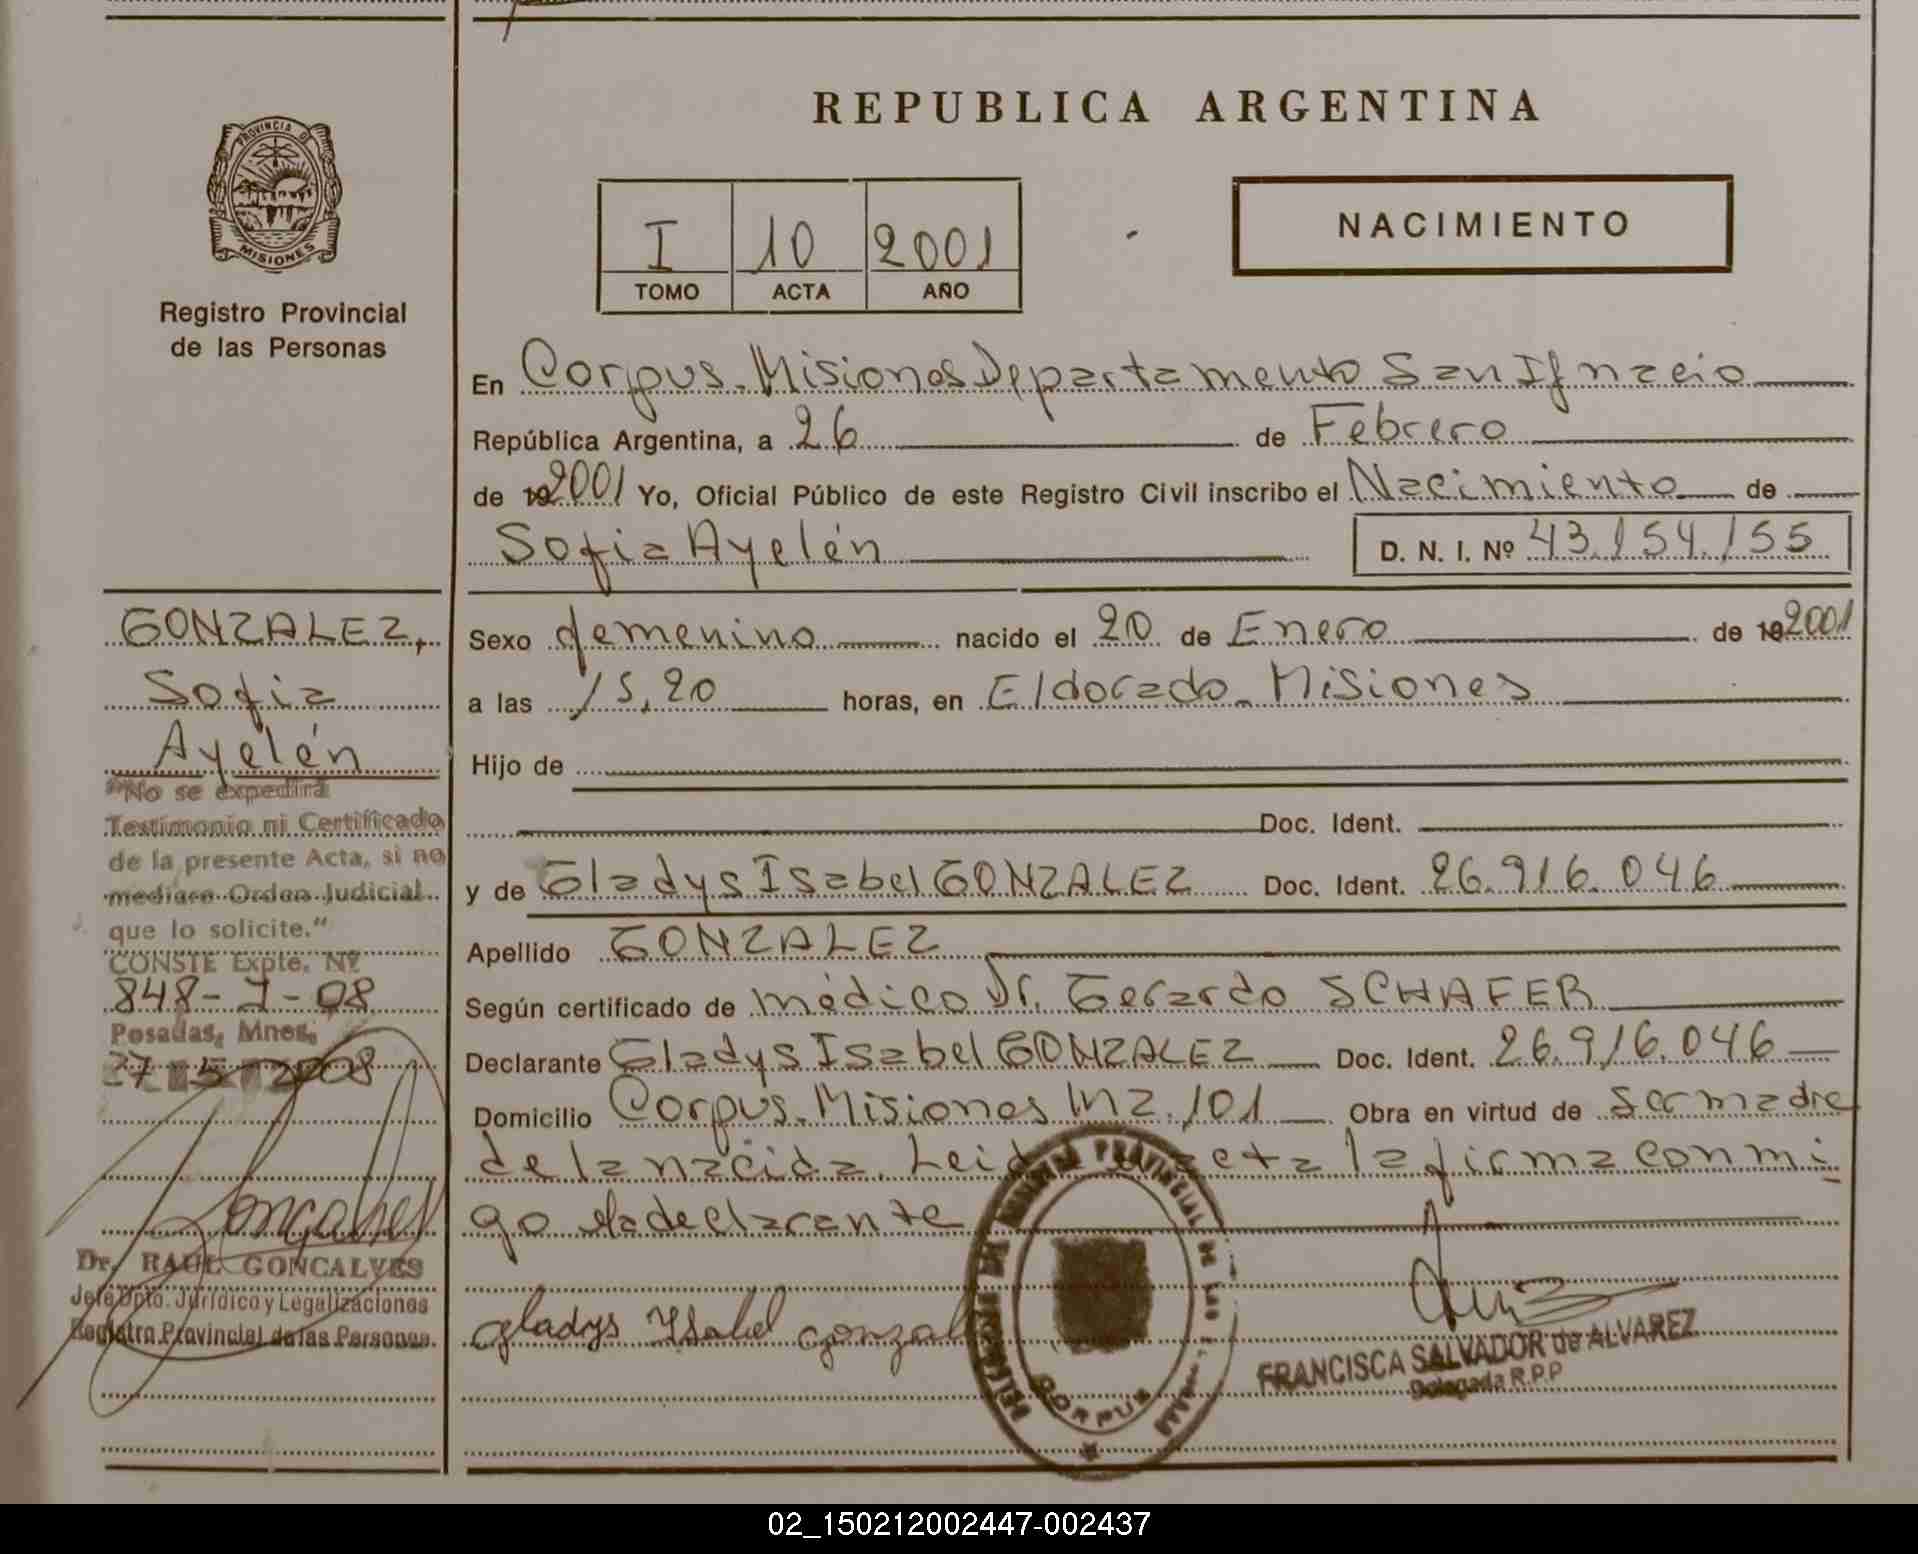 REPUBLICA ARGENTINA
PROVINCIA DE
MISIONES
Registro Provincial
de las Personas
I 10 2001
TOMO ACTA AÑO
NACIMIENTO
En Corpus. Misiones Departamento San Ignacio
República Argentina, a 26 de Febrero
de 19 2001 Yo, Oficial Público de este Registro Civil inscribo el Nacimiento de
Sofia Ayelén D. N. I. Nº 43.154.155
GONZALEZ,
Sofia
Ayelén
"No se expedirá
Testimonio ni Certificado
de la presente Acta, si no
mediare Orden Judicial
que lo solicite."
CONSTE Expte. Nº
848-J-08
Posadas, Mnes.
27 5 2008
Dr. RAUL GONCALVES
Jefe Dpto. Jurídico y Legalizaciones
Registro Provincial de las Personas.
Sexo femenino nacido el 20 de Enero de 19 2001
a las 15,20 horas, en Eldorado. Misiones
Hijo de
Doc. Ident.
y de Gladys Isabel GONZALEZ Doc. Ident. 26.916.046
Apellido GONZALEZ
Según certificado de médico Dr. Gerardo SCHAFER
Declarante Gladys Isabel GONZALEZ Doc. Ident. 26.916.046
Domicilio Corpus. Misiones Mz. 101 Obra en virtud de ser madre
de la nacida. Leida acta la firma conmi
go la declarante
gladys Ysabel gonzal
CORPUS
FRANCISCA SALVADOR de ALVAREZ
Delegada R.P.P
02_150212002447-002437